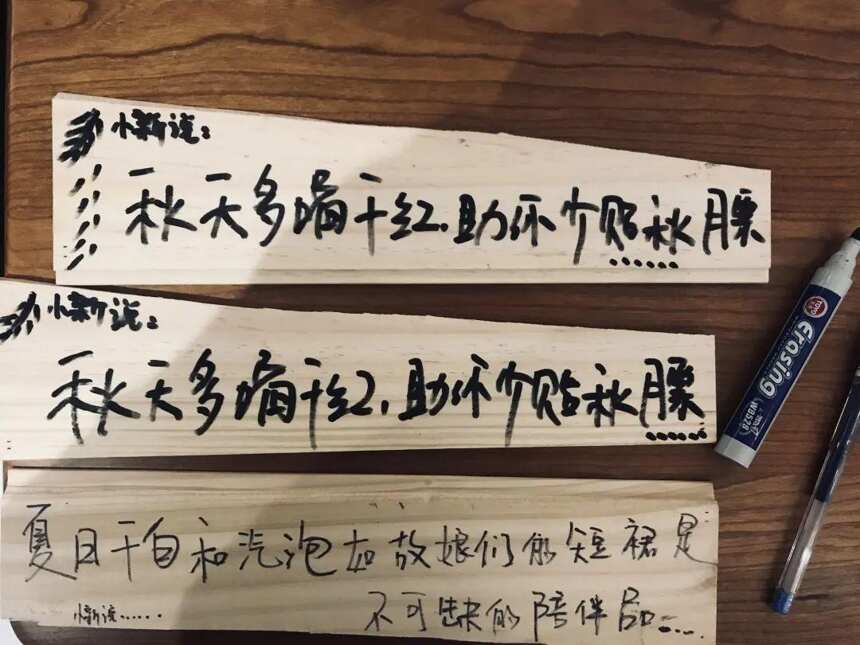 小新说:
秋天多喝干红,助你少贴秋膘
小新说:
秋天多喝干红,助你少贴秋膘
夏日干白和汽泡如故娘们的短裙是
不可缺的陪伴品....
小新说......
TOYO
Erasing
WB528